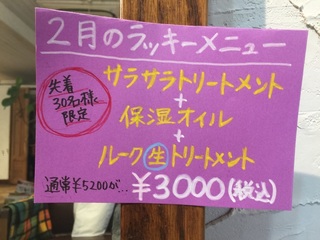 2月のラッキーメニュー
先着
30名様
限定
サラサラトリートメント
+
保湿オイル
+
ルーク生トリートメント
通常¥5200が… ¥3000(税込)